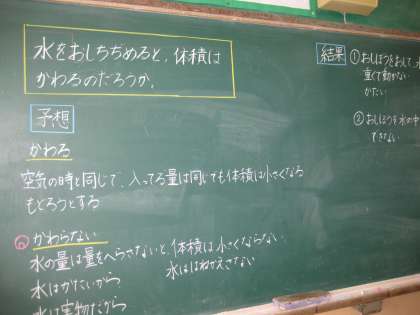 水をおしちぢめると、体積は
かわるのだろうか。
予想
かわる
空気の時と同じで、入ってる量は同じでも体積は小さくなる
もどろうとする
かわらない
水の量は量をへらさないと、体積は小さくならない
水はかたいから
水ははねかえさない
水は実物だから
結果
①おしぼうをおして、水
重くて動かない
かたい
②おしぼうを水の中
できない